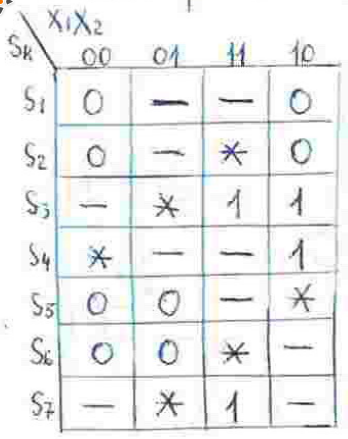 X1X2
SK 00 01 11 10
S1 0 — — 0
S2 0 — * 0
S3 — * 1 1
S4 * — — 1
S5 0 0 — *
S6 0 0 * —
S7 — * 1 —